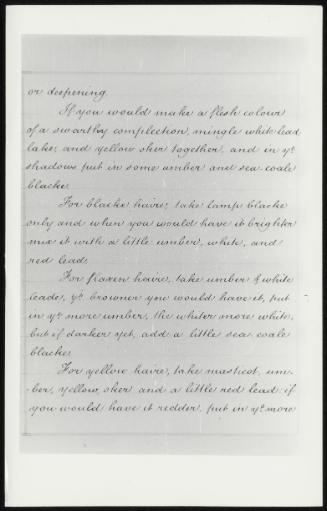 or deepening.
If you would make a flesh colour
of a swarthy complection, mingle white lead
lake, and yellow oker together, and in yᵉ
shadows put in some umber and sea-coale
blacke.
For blacke haire, take lamp blacke
only and when you would have it brighter
mix it with a little umber, white, and
red lead.
For flaxen haire, take umber & white
leade, yᵉ browner you would have it, put
in yᵉ more umber, the whiter more white;
but if darker yet, add a little sea-coale
blacke.
For yellow haire, take masticot, um-
-ber, yellow, oker and a little red lead: if
you would have it redder, put in yᵉ more